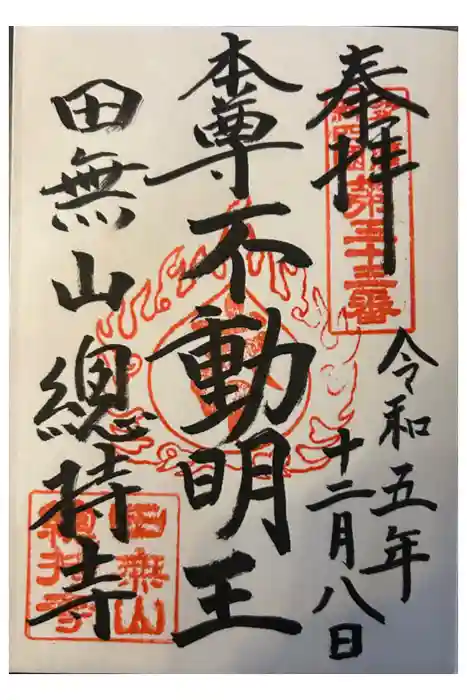 奉拝
令和五年
十二月八日
本尊不動明王
田無山總持寺
第三十三番
田無山
總持寺